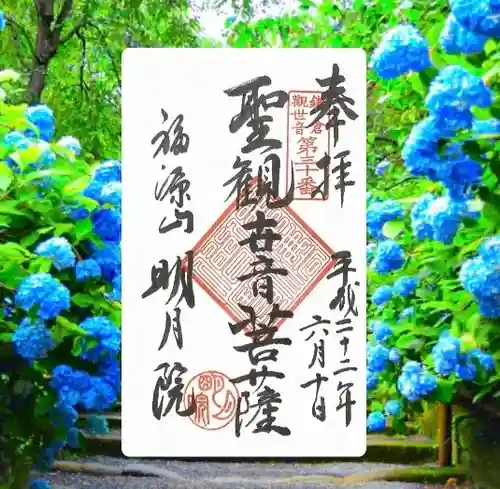 奉拝
鎌倉
観世音
第三十番
平成二十二年
六月十日
聖観世音菩薩
福源山 明月院